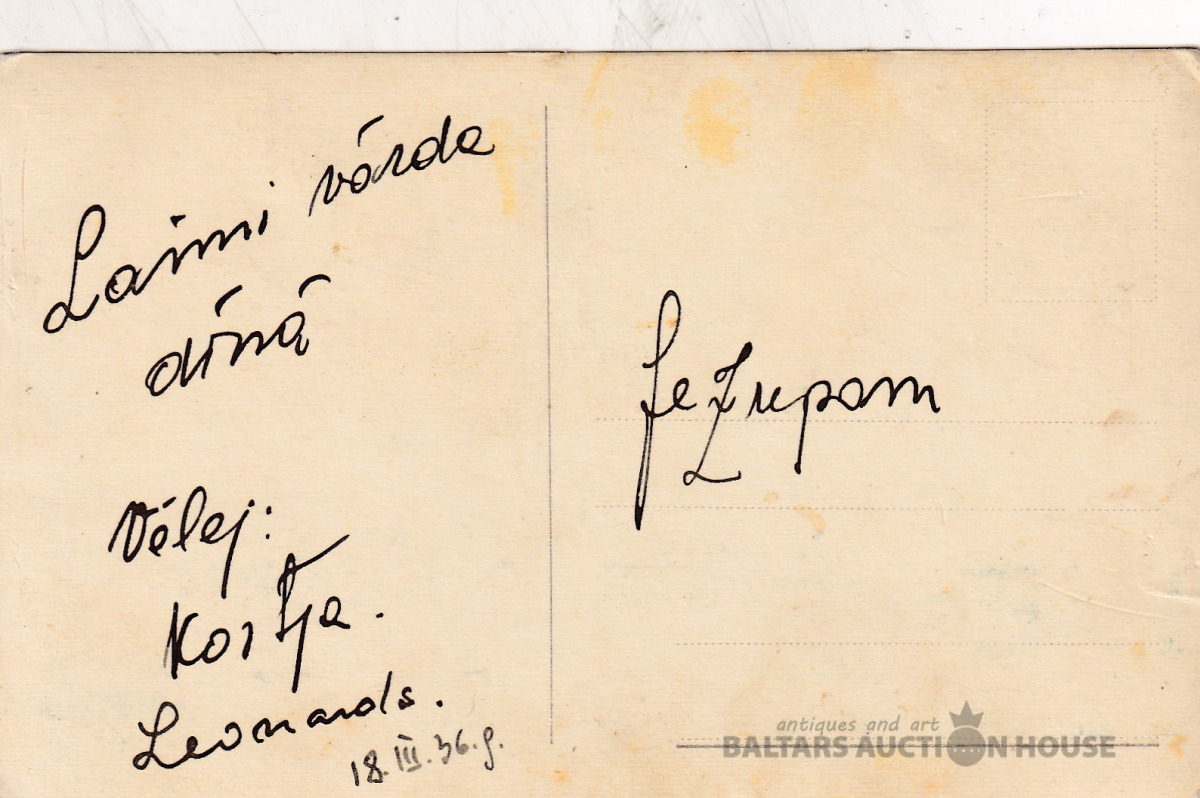 Laimi vārda
dīnā
Vēlej:
Kostja.
Leonards.
18.III.36.g.
Jezupam
antiques and art
BALTARS AUCTION HOUSE